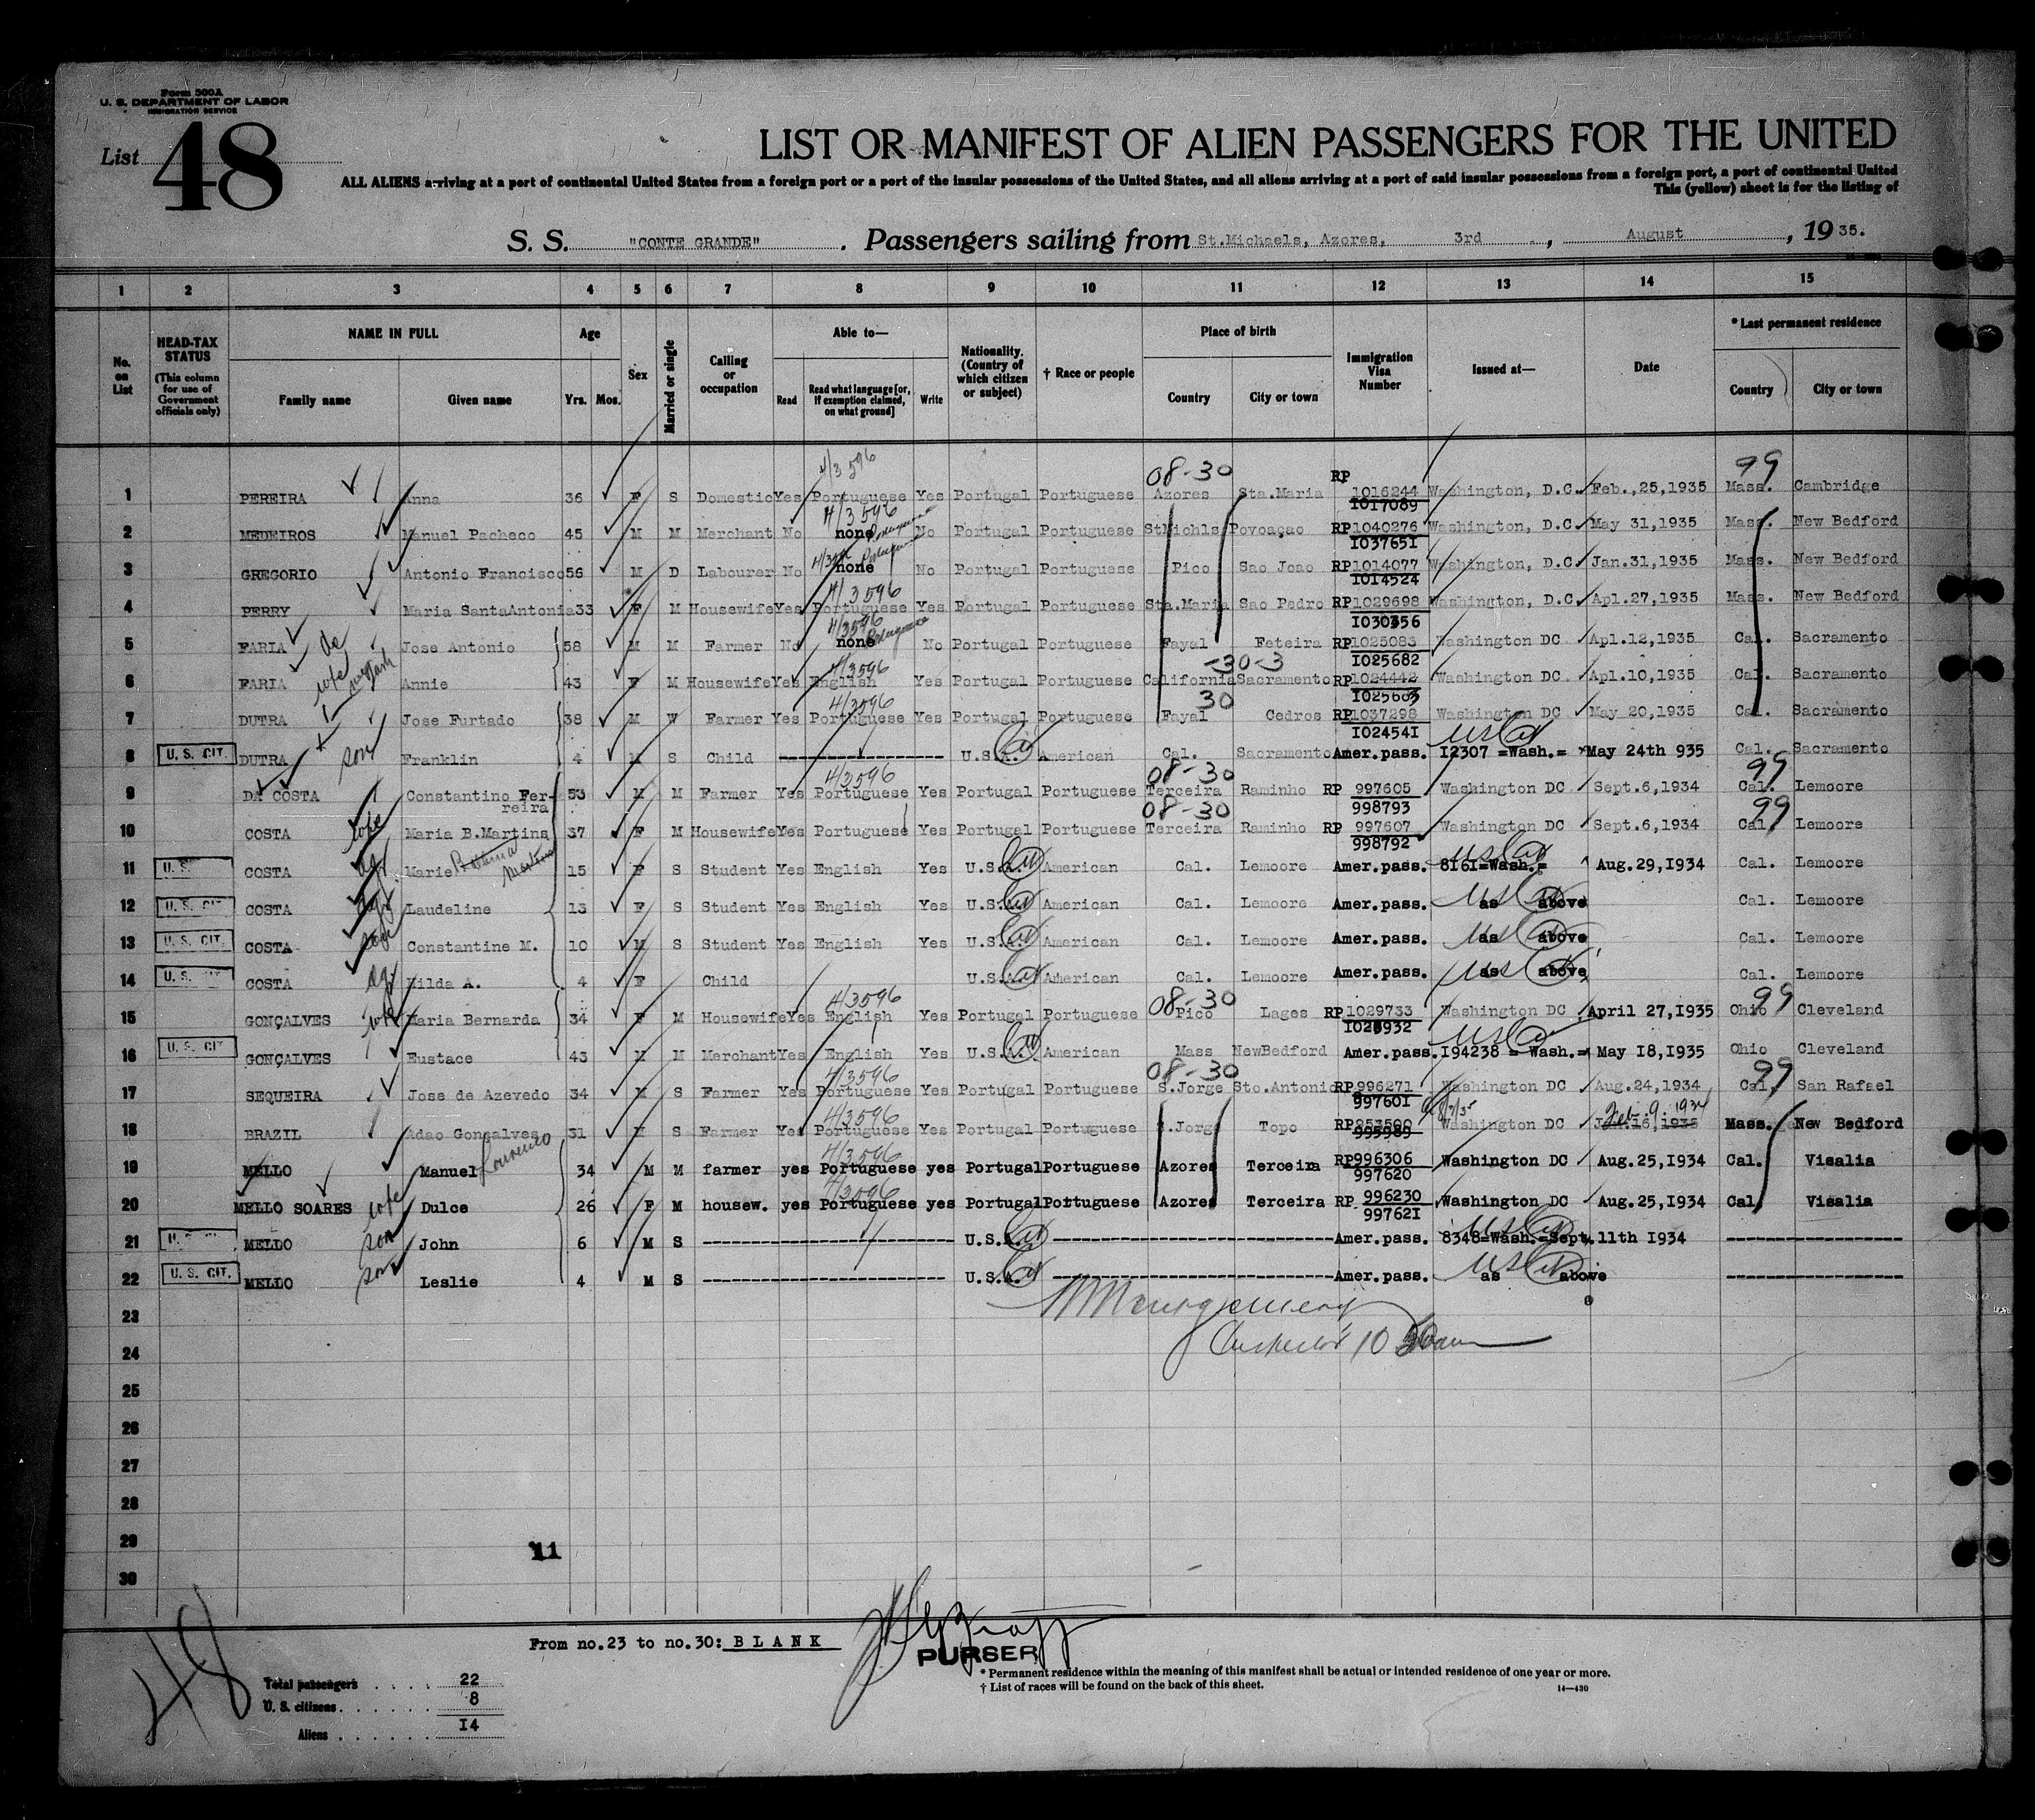 Form 500A
U. S. DEPARTMENT OF LABOR
IMMIGRATION SERVICE
List 48
LIST OR MANIFEST OF ALIEN PASSENGERS FOR THE UNITED
ALL ALIENS arriving at a port of continental United States from a foreign port or a port of the insular possessions of the United States, and all aliens arriving at a port of said insular possessions from a foreign port, a port of continental United
This (yellow) sheet is for the listing of
S. S. "CONTE GRANDE" . Passengers sailing from St.Michaels, Azores, 3rd , August , 19 35.
1 2 3 4 5 6 7 8 9 10 11 12 13 14 15
No. on List
HEAD-TAX STATUS (This column for use of Government officials only)
NAME IN FULL Family name Given name
Age Yrs. Mos.
Sex
Married or single
Calling or occupation
Able to— Read Read what language [or, if exemption claimed, on what ground] Write
Nationality. (Country of which citizen or subject)
† Race or people
Place of birth Country City or town
Immigration Visa Number
Issued at—
Date
* Last permanent residence Country City or town
4/3596 08-30 RP 99
1 PEREIRA Anna 36 F S Domestic Yes Portuguese Yes Portugal Portuguese Azores Sta.Maria 1016244 Washington, D.C. Feb.,25,1935 Mass. Cambridge
4/3596 1017089
2 MEDEIROS Manuel Pacheco 45 M M Merchant No none Portuguese No Portugal Portuguese StMichls Povoaçao RP 1040276 Washington, D.C. May 31,1935 Mass. New Bedford
4/3596 1037651
3 GREGORIO Antonio Francisco 56 M D Labourer No none Portuguese No Portugal Portuguese Pico Sao Joao RP 1014077 Washington, D.C. Jan.31,1935 Mass. New Bedford
4/3596 1014524
4 PERRY Maria SantaAntonia 33 F M Housewife Yes Portuguese Yes Portugal Portuguese Sta.Maria Sao Pedro RP 1029698 Washington, D.C. Apl.27,1935 Mass. New Bedford
4/3596 1030356
5 FARIA de Jose Antonio 58 M M Farmer No none Portuguese No Portugal Portuguese Fayal Feteira RP 1025083 Washington DC Apl.12,1935 Cal. Sacramento
4/3596 -30-3 1025682
6 FARIA wife Annie 43 F M Housewife Yes English Yes Portugal Portuguese California Sacramento RP 1024442 Washington DC Apl.10,1935 Cal. Sacramento
4/3596 30 1025603
7 DUTRA Jose Furtado 38 M W Farmer Yes Portuguese Yes Portugal Portuguese Fayal Cedros RP 1037298 Washington DC May 20,1935 Cal. Sacramento
1024541 USC
8 U. S. CIT. DUTRA son Franklin 4 M S Child U.S.A. American Cal. Sacramento Amer.pass. I2307 =Wash.= May 24th 935 Cal. Sacramento
4/3596 08-30 99
9 DA COSTA Constantino Ferreira 53 M M Farmer Yes Portuguese Yes Portugal Portuguese Terceira Raminho RP 997605 Washington DC Sept.6,1934 Cal. Lemoore
08-30 998793 99
10 COSTA wife Maria B.Martins 37 F M Housewife Yes Portuguese Yes Portugal Portuguese Terceira Raminho RP 997607 Washington DC Sept.6,1934 Cal. Lemoore
998792
11 U. S. COSTA Marie 15 F S Student Yes English Yes U.S.A. American Cal. Lemoore Amer.pass. 8I6I=Wash.= Aug.29,I934 Cal. Lemoore
12 U. S. CIT COSTA Laudeline 13 F S Student Yes English Yes U.S.A. American Cal. Lemoore Amer.pass. as above Cal. Lemoore
13 U. S. CIT. COSTA son Constantine M. 10 M S Student Yes English Yes U.S.A. American Cal. Lemoore Amer.pass. as above Cal. Lemoore
14 U. S. COSTA Hilda A. 4 F Child U.S.A. American Cal. Lemoore Amer.pass. as above Cal. Lemoore
4/3596 08-30 99
15 GONÇALVES wife Maria Bernarda 34 F M Housewife Yes English Yes Portugal Portuguese Pico Lages RP 1029733 Washington DC April 27,I935 Ohio Cleveland
16 U. S. CIT GONÇALVES Eustace 43 M M Merchant Yes English Yes U.S.A. American Mass NewBedford Amer.pass. I94238 = Wash.= May I8,I935 Ohio Cleveland
4/3596 08-30 99
17 SEQUEIRA Jose de Azevedo 34 M S Farmer Yes Portuguese Yes Portugal Portuguese S.Jorge Sto.Antonio RP 996271 Washington DC Aug.24,1934 Cal. San Rafael
4/3596 997601 Feb. 9. 1934
18 BRAZIL Adao Gonçalves 31 M S Farmer Yes Portuguese Yes Portugal Portuguese S.Jorge Topo RP 253500 Washington DC Mass. New Bedford
4/3596 995989
19 MELLO Manuel Lourenco 34 M M farmer yes Portuguese yes Portugal Portuguese Azores Terceira RP 996306 Washington DC Aug.25,I934 Cal. Visalia
4/3596 997620
20 MELLO SOARES wife Dulce 26 F M housew. yes Portuguese yes Portugal Portuguese Azores Terceira RP 996230 Washington DC Aug.25,I934 Cal. Visalia
99762I
21 MELLO son John 6 M S U.S.A. Amer.pass. 8348=Wash.=Sept.11th I934
22 U. S. CIT. MELLO son Leslie 4 M S U.S.A. Amer.pass. as above
23
24 Inspector 10
25
26
27
28
29
11
30
48
From no.23 to no.30: B L A N K
PURSER
Total passengers 22
U. S. citizens 8
Aliens I4
* Permanent residence within the meaning of this manifest shall be actual or intended residence of one year or more.
† List of races will be found on the back of this sheet.
14—430